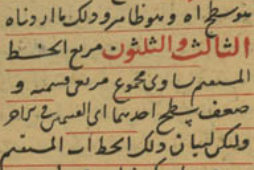 هو سطح اه وهو ظاهر ودلك ما اردناه
الثالث والثلثون مربع الخط
المستقيم يساوى مجموع مربعى قسميه و
ضعف سطح احدهما اى القسمين فى الاخر
وليكن لبيان دلك الخط اب المستقيم